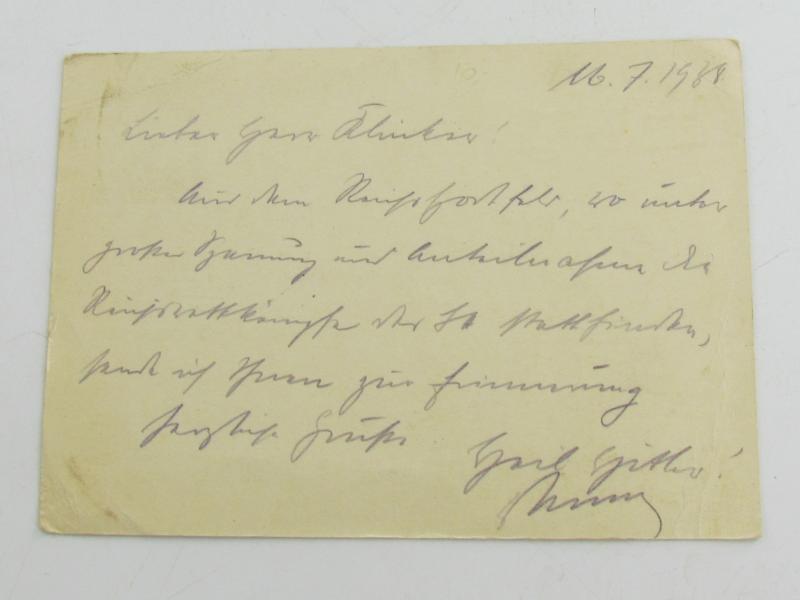 16.7.1938
Lieber Herr Klinker!
Aus dem Reichssportfeld, wo unter
großer Spannung und Anteilnahme die
Reichswettkämpfe der SA stattfinden,
sende ich Ihnen zur Erinnerung
herzliche Grüße
Heil Hitler!